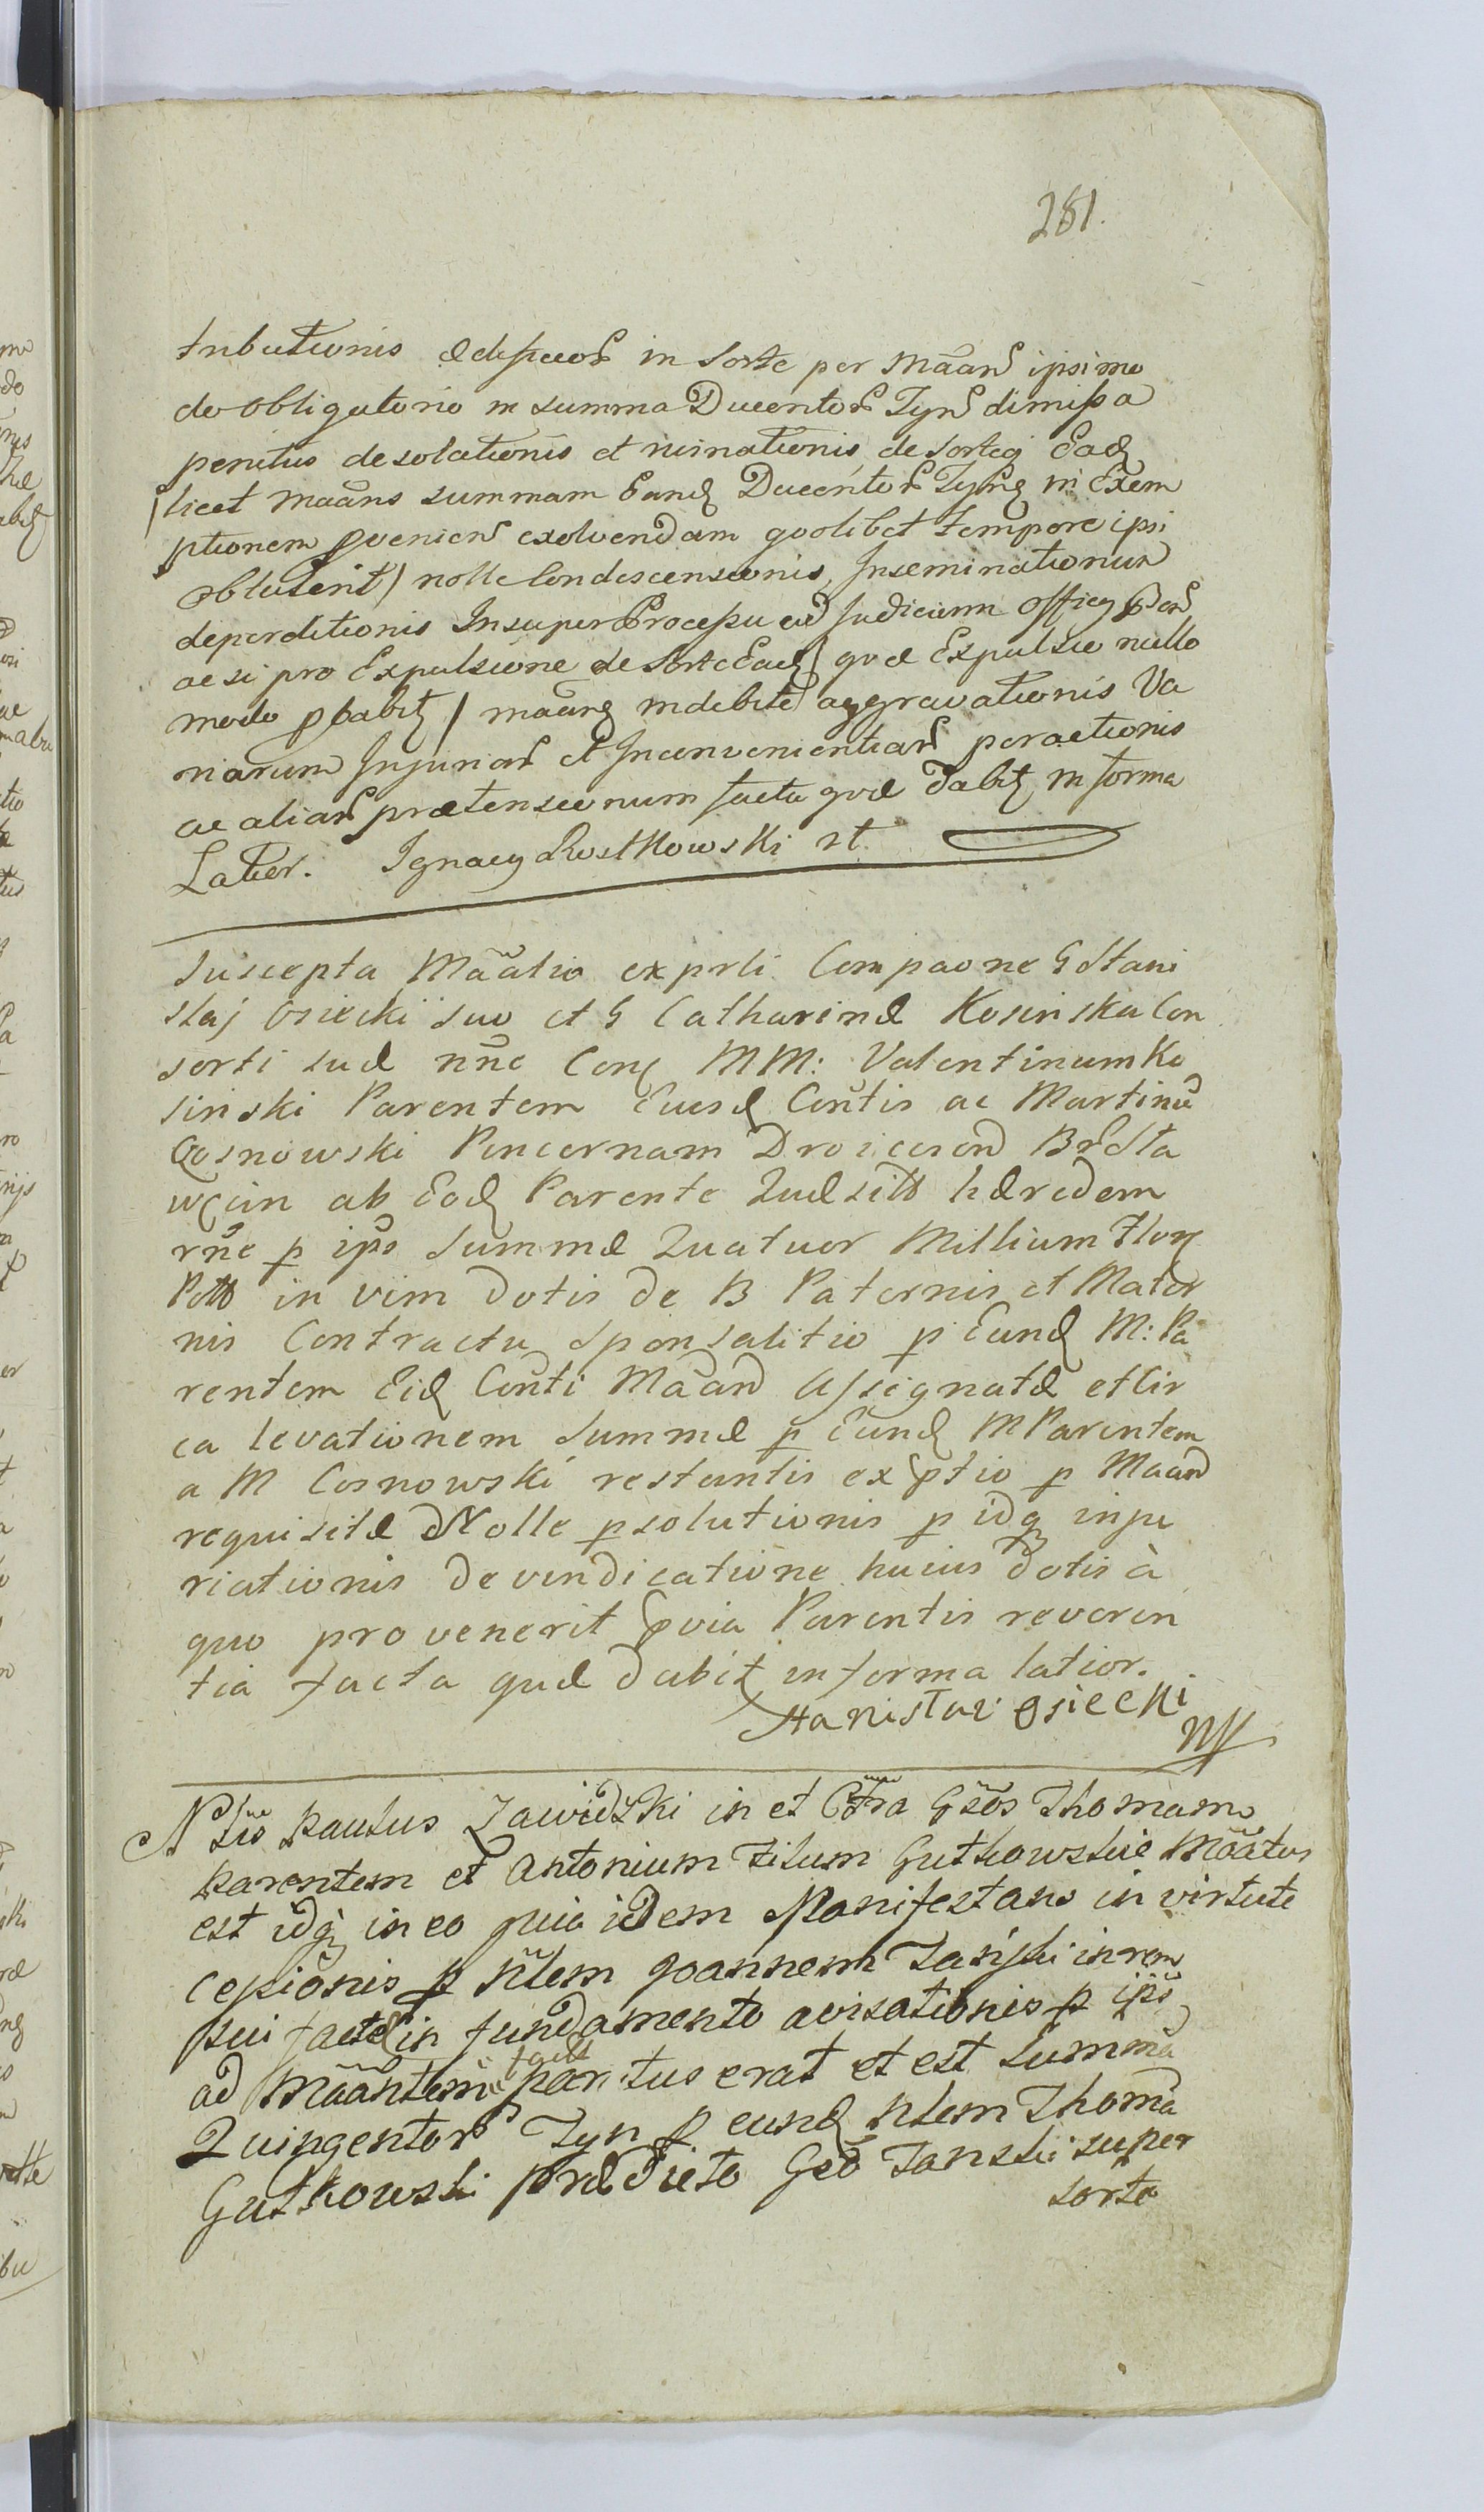 281.
tributionis ædificior in sorte per Mãand ipsi mo
do obligatorio in summa Ducentor Tynf dimissa
penitus desolationis et ruinationis de sorteq Eadq
/licet Mãans summam Eandq Ducentor Tynf in Exem
ptionem pvenien exolvendam qvolibet tempore ipsi
obtulerit/ nolle Condescensionis, Inseminationum
deperditionis Insuper Processu ad Judicium Officy
ac si pro Expulsione de Sorte Eadq / qvæ Expulsio nullo
modo pbabitq / mãanq indebite aggravationis Va
riarum Injuriar et Inconvenientiar peractionis
ac aliar prætensionum facta qvæ dabitq in forma
Latior. Ignacy Rostkowski rt
Suscepta Mãatio ex prti Compaone G Stani
slaj Osiecki suo et G Catharinæ Kosinska Con
sorti suæ nñe Conq MM: Valentinum Ko
sinski Parentem Eiusdq Contis ac Martinũ
Cosnowski Pincernam Drohicen Br Sta
wqcin ab Eodq Parente Quæsitt hæredem
rñe p ipõ Summæ Quatuor Millium Florq
Potts in vim dotis de B Paternis et Mater
nis Contractu Sponsalitio p Eundq M: Pa
rentem Eidq Conti Mãand Assignatæ et Cir
ca levationem Summæ p Eundq M Parentem
a M Cosnowski restantis exptio p Maand
requisitæ Nolle psolutionis p idq inju
riationis devendicatione huius dotis à
quo provenerit salva Parentis reveren
tia facta quæ dabit in forma latior.
Stanisław Osiecki
mp
Nlis Paulus Zawidzki in et Cõtra Gsõs Thomam
Parentem et Antonium Filum Gutkowskie Mãatus
est idq in eo quia idem Manifestans in virtute
cessionis p Nlem Joannem Tański in rem
sui factæ in fundamento avisationis p ipõ
ad Mãantem factæ paritus erat et est Summa
Quingentor Tyn p eundq Nlem Thomã
Gutkowski prædicto Gsõ Tanski super
sorte